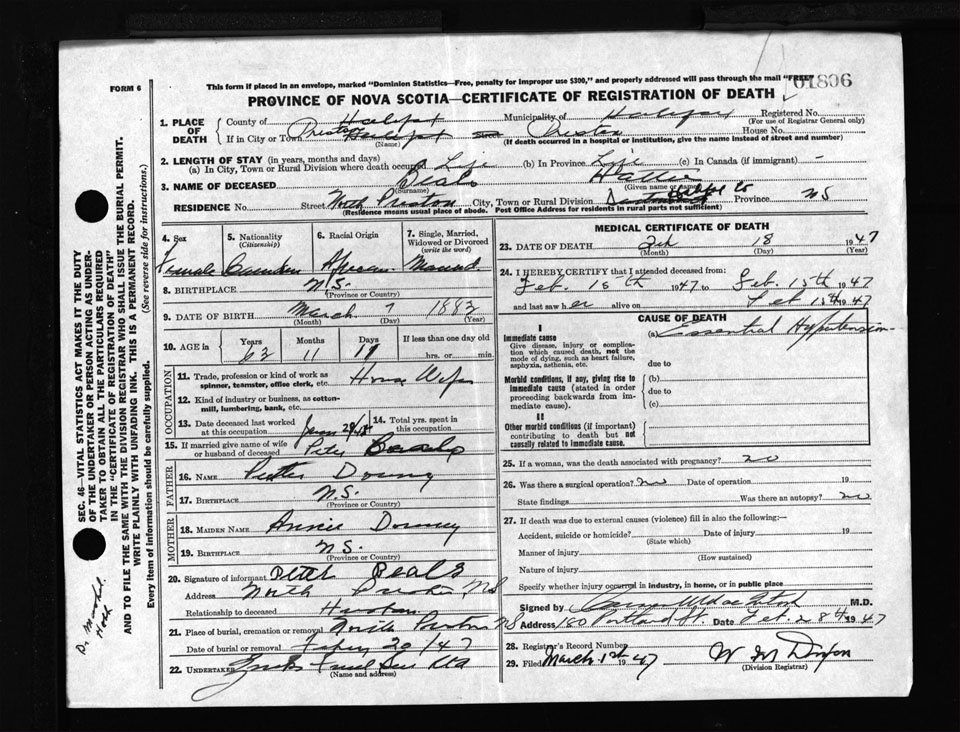 This form if placed in an envelope, marked "Dominion Statistics—Free, penalty for improper use $300," and properly addressed will pass through the mail "FREE"
FORM 6
01806
PROVINCE OF NOVA SCOTIA—CERTIFICATE OF REGISTRATION OF DEATH
1. PLACE OF DEATH
County of Halifax Municipality of Halifax Registered No.
(For use of Registrar General only)
If in City or Town Preston Halifax Street Preston House No.
(Name) (If death occurred in a hospital or institution, give the name instead of street and number)
2. LENGTH OF STAY (in years, months and days)
(a) In City, Town or Rural Division where death occurred Life (b) In Province Life (c) In Canada (if immigrant) -
3. NAME OF DECEASED Beals Hattie
(Surname) (Given name or names)
RESIDENCE No. Street North Preston City, Town or Rural Division Halifax Co Province NS
(Residence means usual place of abode. Post Office Address for residents in rural parts not sufficient)
4. Sex
Female
5. Nationality
(Citizenship)
Canadian
6. Racial Origin
African
7. Single, Married, Widowed or Divorced
(write the word)
Married
8. BIRTHPLACE N.S.
(Province or Country)
9. DATE OF BIRTH March 7 1883
(Month) (Day) (Year)
10. AGE in Years Months Days If less than one day old
63 11 11 hrs. or min.
OCCUPATION
11. Trade, profession or kind of work as spinner, teamster, office clerk, etc. House Wife
12. Kind of industry or business, as cotton-mill, lumbering, bank, etc.
13. Date deceased last worked at this occupation Jan
14. Total yrs. spent in this occupation
15. If married give name of wife or husband of deceased Peter Beals
FATHER
16. NAME Peter Downey
17. BIRTHPLACE N.S.
(Province or Country)
MOTHER
18. MAIDEN NAME Annie Downey
19. BIRTHPLACE N.S.
(Province or Country)
20. Signature of informant Peter Beals
Address North Preston NS
Relationship to deceased Husband
21. Place of burial, cremation or removal North Preston NS
Date of burial or removal Feby 20/47
22. UNDERTAKER
(Name and address)
MEDICAL CERTIFICATE OF DEATH
23. DATE OF DEATH Feb 18 1947
(Month) (Day) (Year)
24. I HEREBY CERTIFY that I attended deceased from:
Feb. 15th 1947 to Feb. 15th 1947
and last saw her alive on Feb 15th 1947
CAUSE OF DEATH
I
Immediate cause
Give disease, injury or complication which caused death, not the mode of dying, such as heart failure, asphyxia, asthenia, etc.
(a) Essential Hypertension
due to
Morbid conditions, if any, giving rise to immediate cause (stated in order proceeding backwards from immediate cause).
(b)
due to
(c)
II
Other morbid conditions (if important) contributing to death but not causally related to immediate cause.
25. If a woman, was the death associated with pregnancy? no
26. Was there a surgical operation? no Date of operation 19
State findings Was there an autopsy? no
27. If death was due to external causes (violence) fill in also the following:—
Accident, suicide or homicide? Date of injury 19
(State which)
Manner of injury
(How sustained)
Nature of injury
Specify whether injury occurred in industry, in home, or in public place
Signed by M.D.
Address 160 Portland St. Date Feb. 28th 1947
28. Registrar's Record Number
29. Filed March 1st 1947 W M Dixon
(Division Registrar)
SEC. 46—VITAL STATISTICS ACT MAKES IT THE DUTY
OF THE UNDERTAKER OR PERSON ACTING AS UNDER-
TAKER TO OBTAIN ALL THE PARTICULARS REQUIRED
IN THE "CERTIFICATE OF REGISTRATION OF DEATH"
AND TO FILE THE SAME WITH THE DIVISION REGISTRAR WHO SHALL ISSUE THE BURIAL PERMIT.
WRITE PLAINLY WITH UNFADING INK. THIS IS A PERMANENT RECORD.
Every item of information should be carefully supplied. (See reverse side for instructions.)